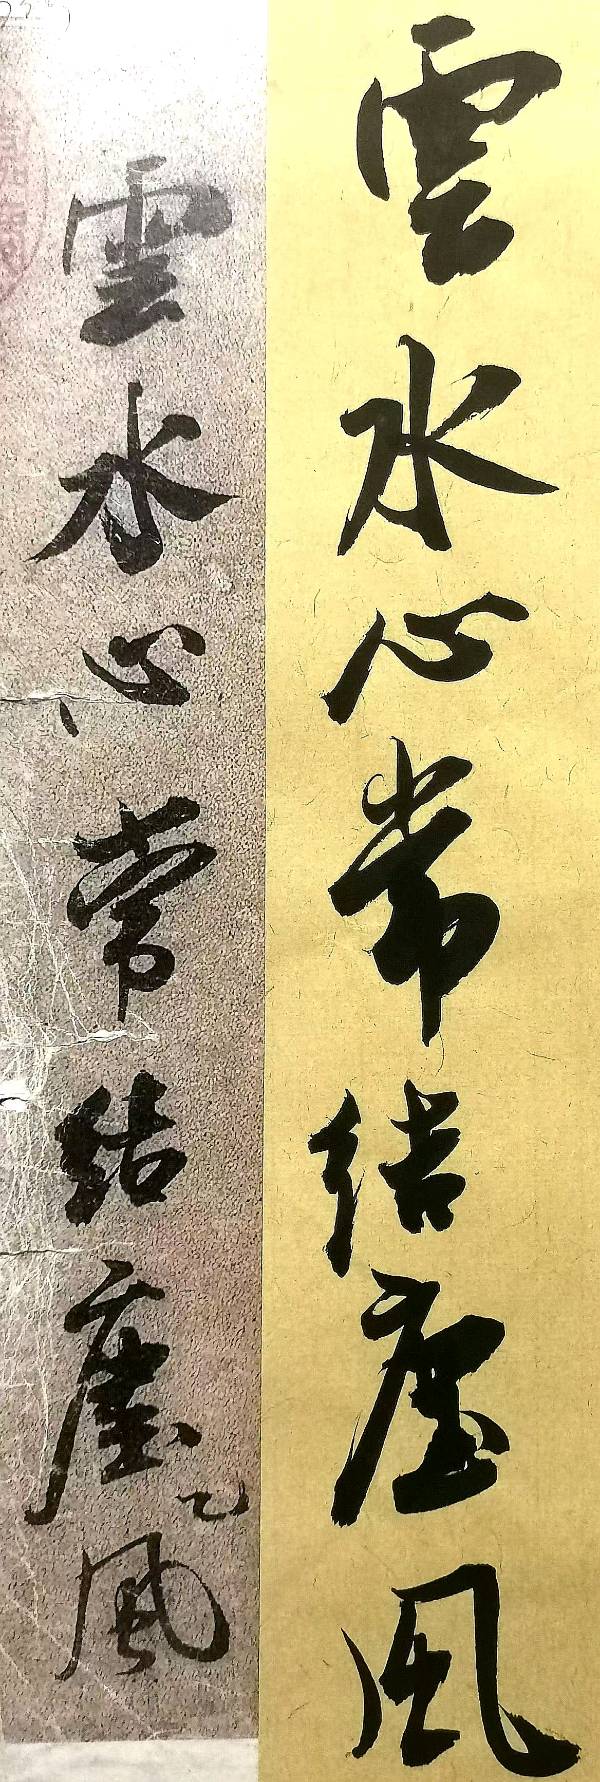 雲水心常結塵風
雲水心常結塵風